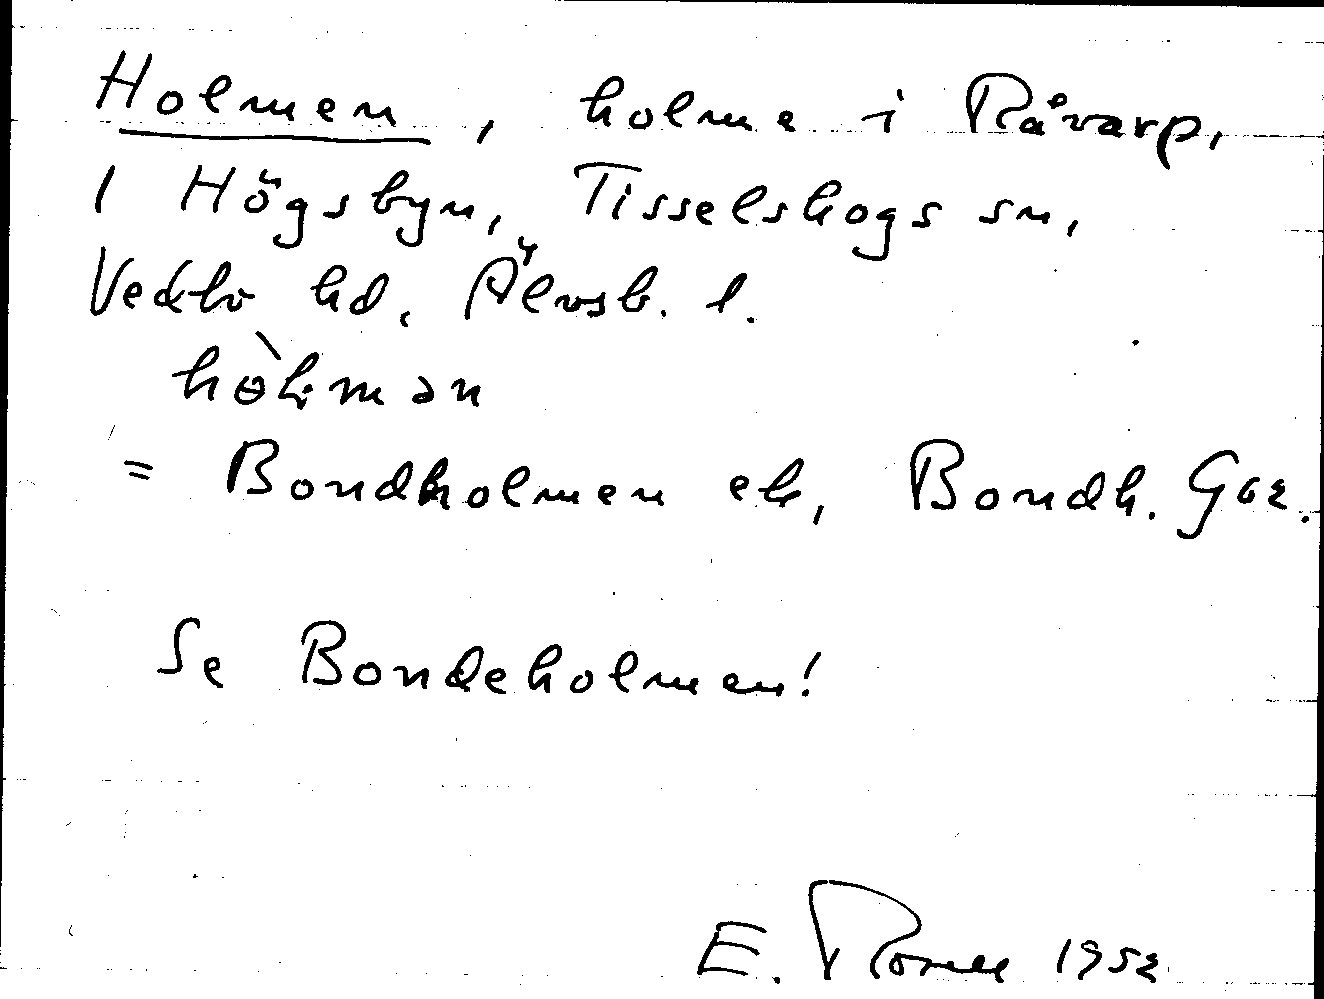 Holmen, holme i Råvarp,
1 Högsbyn, Tisselskogs sn,
Vedbo hd, Älvsb. l.
= Bondholmen ek, Bondh. Gsz.
Se Bondeholmen!
E. 1952